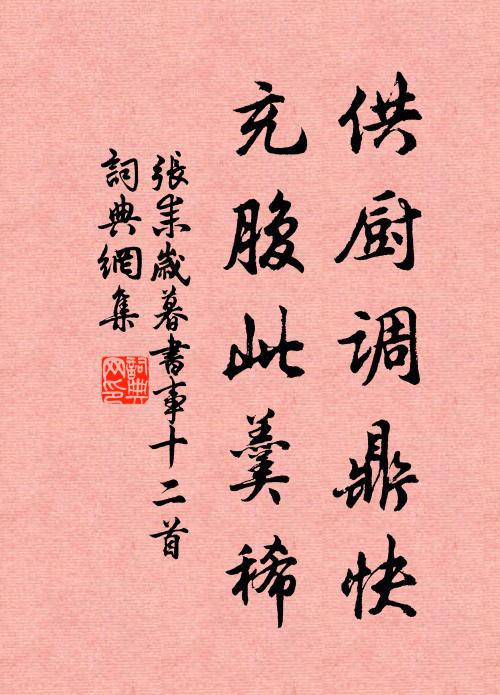 供厨调鼎快
充腹此羹稀
張耒歲暮書事十二首
詞典網集
詞典網印